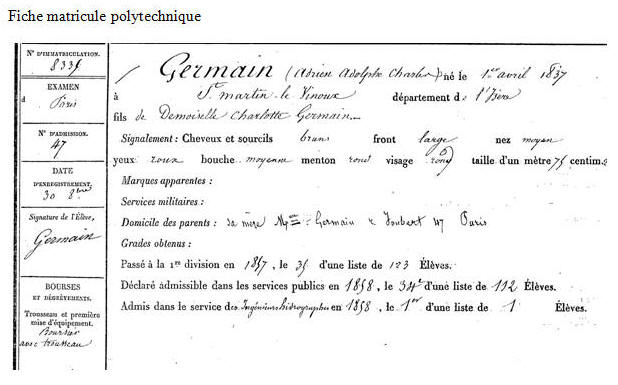 Fiche matricule polytechnique
N° D'IMMATRICULATION.
EXAMEN
à Paris
N° D'ADMISSION.
47
DATE
D'ENREGISTREMENT.
30 8bre
Signature de l'Élève,
Germain
BOURSES
ET DÉGRÈVEMENTS.
Trousseau et première
mise d'équipement.
Boursier
avec trousseau
Germain (Adrien Adolphe Charles) né le 1er avril 1837
à St martin-le Vinoux département de l'Isère
fils de Demoiselle Charlotte Germain.
Signalement: Cheveux et sourcils bruns front large nez moyen
yeux roux bouche moyenne menton rond visage rond taille d'un mètre 75 centim.
Marques apparentes :
Services militaires :
Domicile des parents : sa mère Germain r. Joubert 47 Paris
Grades obtenus :
Passé à la 1re division en 1857, le 35 d'une liste de 123 Élèves.
Déclaré admissible dans les services publics en 1858, le 34e d'une liste de 112 Élèves.
Admis dans le service des Ingénieurs hidrographes en 1858, le 1er d'une liste de 1 Élèves.